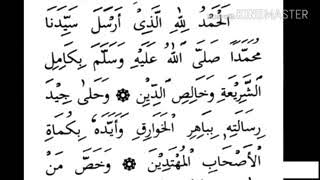 اَلْحَمْدُ لِلّٰهِ الَّذِيْ اَرْسَلَ سَيِّدَنَا
مُحَمَّدًا صَلَّى اللّٰهُ عَلَيْهِ وَسَلَّمَ بِكَامِلِ
الشَّرِيْعَةِ وَخَالِصِ الدِّيْنِ ۞ وَحَلّٰى جِيْدَ
رِسَالَتِهِ بِبَاهِرِ الْخَوَارِقِ وَاَيَّدَهُ بِكُمَاةِ
الْاَصْحَابِ الْمُهْتَدِيْنَ ۞ وَخَصَّ مَنْ